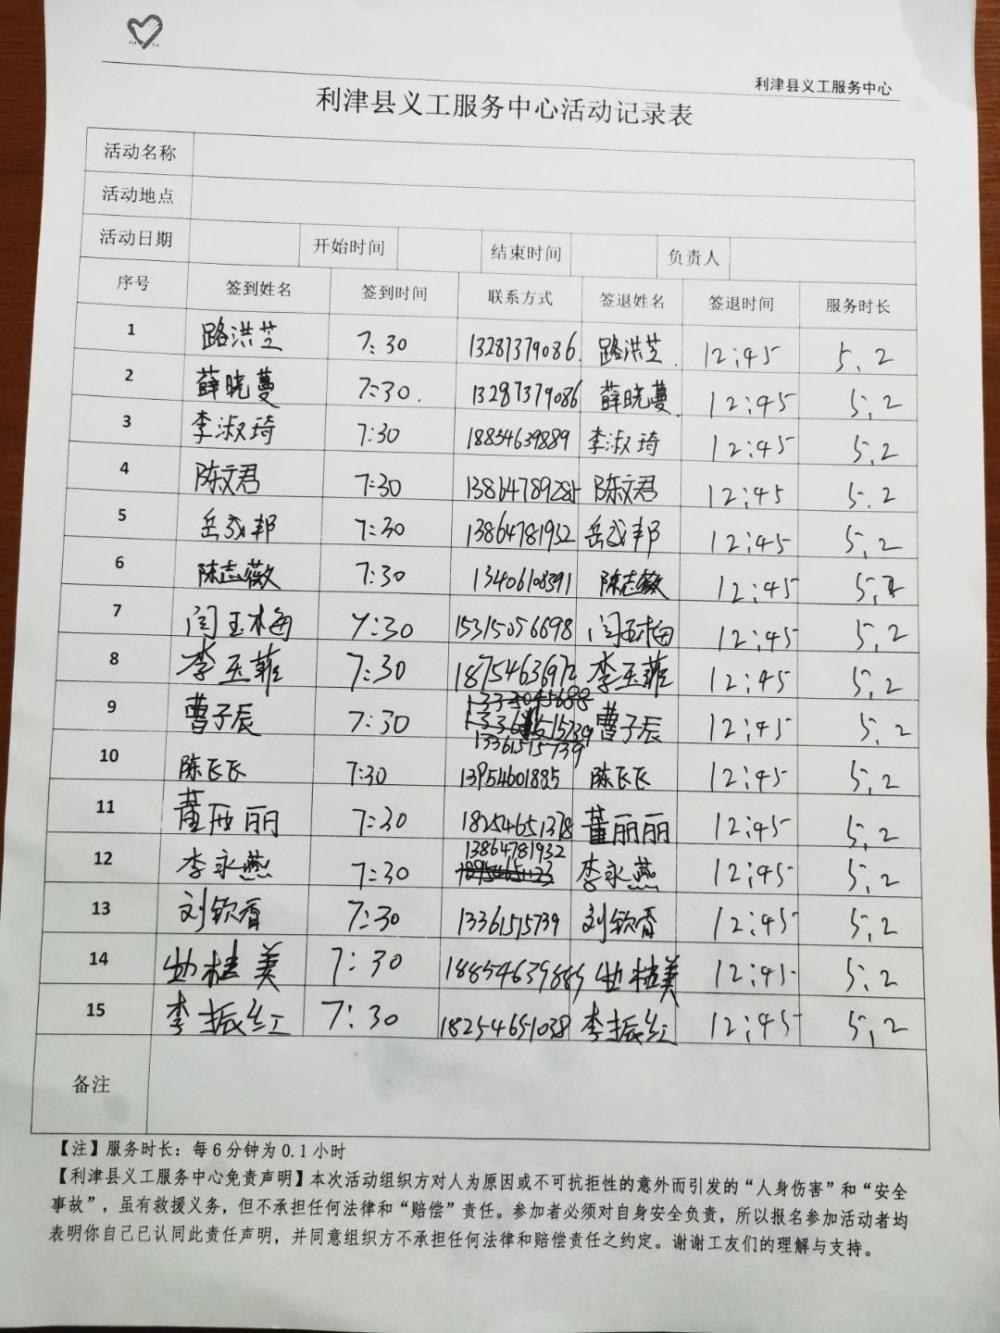 利津县义工服务中心
利津县义工服务中心活动记录表
活动名称
活动地点
活动日期 开始时间 结束时间 负责人
序号 签到姓名 签到时间 联系方式 签退姓名 签退时间 服务时长
1 路洪芝 7:30 13287379086 路洪芝 12:45 5.2
2 薛晓蔓 7:30 13287379086 薛晓蔓 12:45 5.2
3 李淑琦 7:30 18854639889 李淑琦 12:45 5.2
4 陈文君 7:30 13864789285 陈文君 12:45 5.2
5 岳成邦 7:30 13864781932 岳成邦 12:45 5.2
6 陈志薇 7:30 13406108391 陈志薇 12:45 5.2
7 闫玉梅 7:30 15315056698 闫玉梅 12:45 5.2
8 李玉菲 7:30 18754463697 李玉菲 12:45 5.2
9 曹子辰 7:30 13361515739 曹子辰 12:45 5.2
10 陈飞飞 7:30 13954601885 陈飞飞 12:45 5.2
11 董丽丽 7:30 18254651378 董丽丽 12:45 5.2
12 李永燕 7:30 13864781932 李永燕 12:45 5.2
13 刘钦香 7:30 13361515739 刘钦香 12:45 5.2
14 桂美 7:30 18854639889 桂美 12:45 5.2
15 李振红 7:30 18254651038 李振红 12:45 5.2
备注
【注】服务时长：每6分钟为0.1小时
【利津县义工服务中心免责声明】本次活动组织方对人为原因或不可抗拒性的意外而引发的“人身伤害”和“安全
事故”，虽有救援义务，但不承担任何法律和“赔偿”责任。参加者必须对自身安全负责，所以报名参加活动者均
表明你自己已认同此责任声明，并同意组织方不承担任何法律和赔偿责任之约定。谢谢工友们的理解与支持。